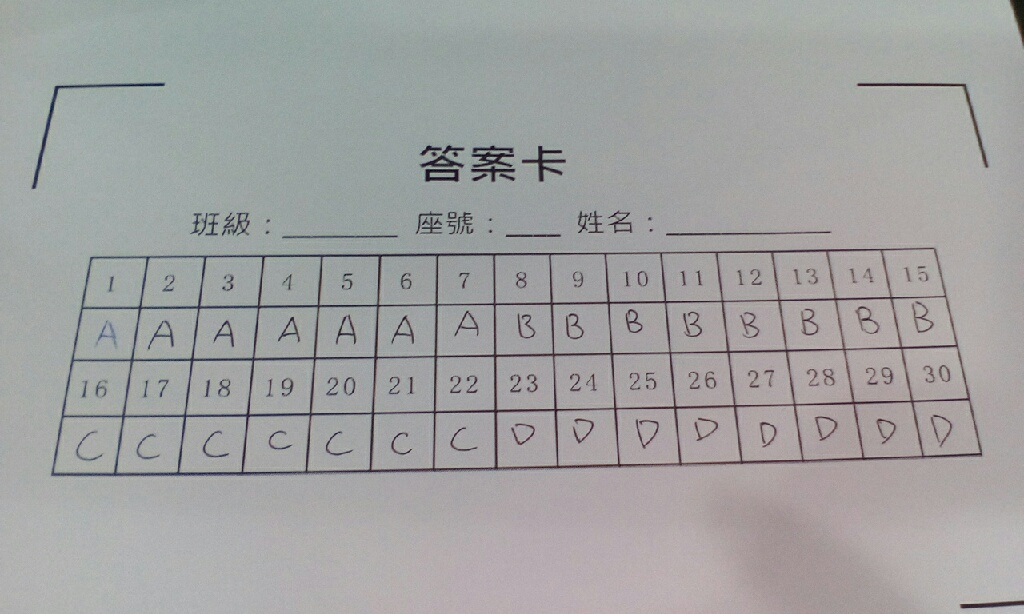 答案卡
班級：________ 座號：____ 姓名：____________
1 2 3 4 5 6 7 8 9 10 11 12 13 14 15
A A A A A A A B B B B B B B B
16 17 18 19 20 21 22 23 24 25 26 27 28 29 30
C C C C C C C D D D D D D D D